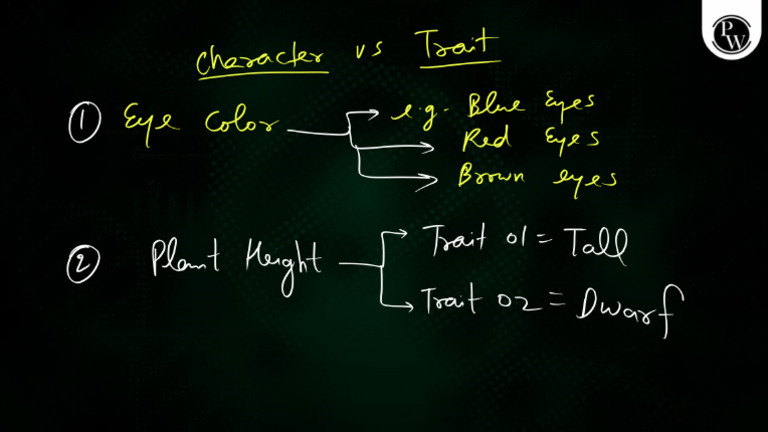 Character vs Trait
PW
① Eye Color
e.g. Blue Eyes
Red Eyes
Brown eyes
② Plant Height
Trait 01 = Tall
Trait 02 = Dwarf